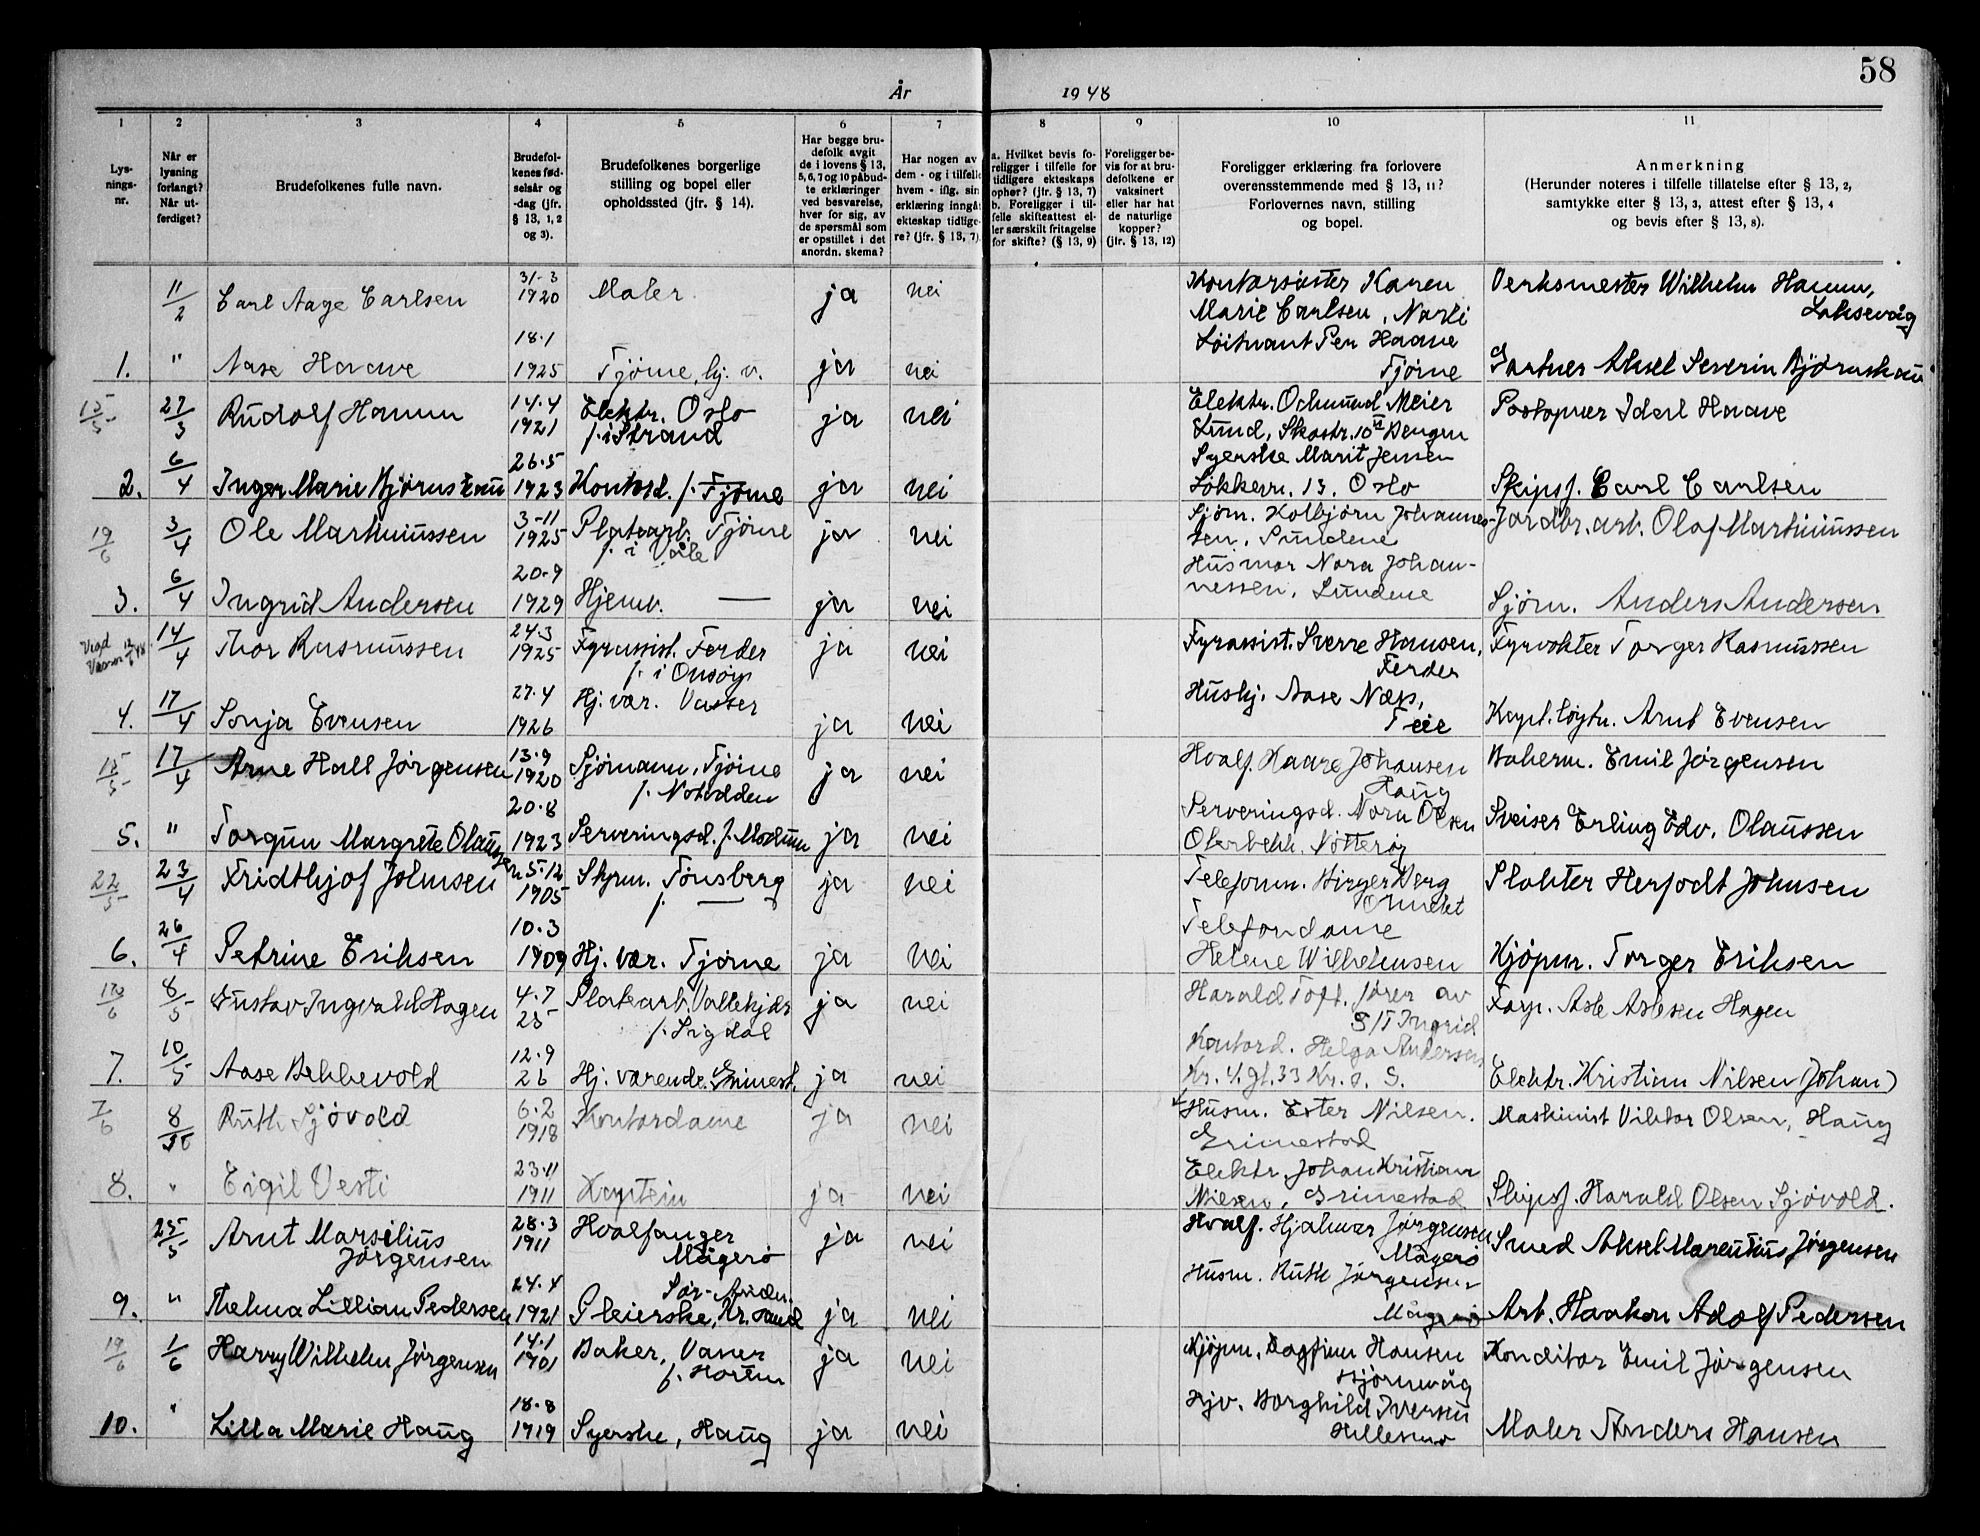 58
År 1948
1 2 3 4 5 6 7 8 9 10 11
Lys-
nings-
nr.
Når er
lysning
forlangt?
Når ut-
ferdiget?
Brudefolkenes fulle navn.
Brudefol-
kenes fød-
selsår og
-dag (jfr.
§ 13, 1, 2
og 3).
Brudefolkenes borgerlige
stilling og bopel eller
opholdssted (jfr. § 14).
Har begge bru-
defolk avgit
de i lovens § 13,
5, 6, 7 og 10 påbud-
te erklæringer
ved besvarelse,
hver for sig, av
de spørsmål som
er opstillet i det
anordn. skema?
Har nogen av
dem - og i tilfelle
hvem - iflg. sin
erklæring inngåt
ekteskap tidlige-
re? (jfr. § 13, 7).
a. Hvilket bevis fo-
religger i tilfelle for
tidligere ekteskaps
ophør? (jfr. § 13, 7)
b. Foreligger i til-
felle skifteattest el-
ler særskilt fritagelse
for skifte? (§ 13, 9)
Foreligger be-
vis for at bru-
defolkene er
vaksinert
eller har hat
de naturlige
kopper?
(jfr. § 13, 12)
Foreligger erklæring fra forlovere
overensstemmende med § 13, 11?
Forlovernes navn, stilling
og bopel.
Anmerkning
(Herunder noteres i tilfelle tillatelse efter § 13, 2,
samtykke efter § 13, 3, attest efter § 13, 4
og bevis efter § 13, 8).
11/2 Carl Aage Carlsen 31-3 1920 Maler ja nei Kontorsøster Karen
Marie Carlsen, Narli
Verksmester Wilhelm Hamm,
Laksevåg
1. " Aase Haave 18.1 1925 Tjøme, hj. v. ja nei Løitnant Per Haave
Tjöme
Gartner Aksel Severin Bjørnskau
15/5 27/3 Rudolf Hamm 14.4 1921 Elektr. Oslo
f. i Strand ja nei Elektr. Ochmund Meier
Lund, Skostr. 10 VI Bergen
Postopner Idarl Haave
2. 6/4 Inger Marie Bjørnskau 26.5 1923 Kontord. f. Tjöme ja nei Syerske Marit Jensen
Løkkevn. 13. Oslo
Skipsf. Carl Carlsen
19/6 3/4 Ole Martiniussen 3-11 1925 Platearb. Tjöme
f. i Våle ja nei Sjøm. Kolbjörn Johannes-
sen, Sundene
Jordbr. arb. Olaf Martiniussen
3. 6/4 Ingrid Andersen 20.9 1929 Hjemv. — ja nei Husmor Nora Johan-
nessen, Sundene
Sjøm. Anders Andersen
Viga Vasser 12/6 48. 14/4 Thor Rasmussen 24.3 1925 Fyrassist. Ferder
f. i Onsöy ja nei Fyrassist. Sverre Hansen,
Ferder
Fyrvokter Torger Rasmussen
4. 17/4 Sonja Evensen 27.4 1926 Hj. vær. Vasser ja nei Hushj. Aase Næss,
Teie
Kapt. løytn. Arnt Evensen
15/5 17/4 Arne Hall Jörgensen 13.9 1920 Sjömann, Tjöme
f. Notodden ja nei Hvalf. Kaare Johansen
Haug
Bakerm. Emil Jörgensen
5. " Torgun Margrete Olaussen 20.8 1923 Serveringsd. f. Modum ja nei Serveringsd. Nora Olsen
Olerbekk. Nötteröy
Sveiser Erling Edv. Olaussen
22/5 23/4 Fridthjof Johnsen 5.12 1905 Skpm. Tönsberg
f. — ja nei Telefonm. Birger Berg
Ormelet
Slakter Herfodt Johnsen
6. 26/4 Petrine Eriksen 10.3 1909 Hj. vær. Tjöme ja nei Telefondame
Helene Wilhelmsen
Kjöpm. Torger Eriksen
8/5 Gustav Ingvald Hagen 4.7 25 Platearb. Vallekjær
f. Sigdal ja nei Harald Toft, fører av
S/T Ingrid
Forp. Asle Aslesen Hagen
7. 10/5 Aase Bekkevold 12.9 26 Hj. værende. Grimest. ja nei Kontord. Helga Andersen
Kr. 4. gt. 33 Kr. s. S.
Elektr. Kristian Nilsen (Johan)
7/6 8/5 Ruth Sjövold 6.2 1918 Kontordame ja nei Husm. Ester Nilsen.
Grimestad
Maskinist Viktor Olsen, Haug
8. " Eigil Vesti 23.11 1911 Kaptein ja nei Elektr. Johan Kristian
Nilsen, Grimestad
Skipsf. Harald Olsen Sjövold.
25/5 Arnt Marsilius
Jørgensen 28.3 1911 Hvalfanger
Mågerø ja nei Hvalf. Hjalmar Jørgensen
Mågerö
Smed Aksel Marentius Jørgensen
9. " Thelma Lillian Pedersen 24.4 1921 Sør-Audn.
Pleierske, Kr. sand ja nei Husm. Ruth Jörgensen
Mågerö
Arb. Haakon Adolf Pedersen
19/6 1/6 Harry Wilhelm Jørgensen 14.1 1901 Baker, Vaner
f. Horten ja nei Kjöpm. Dagfinn Hansen
Bjørnevåg
Konditor Emil Jørgensen
10. " Lilla Marie Haug 18.8 1919 Syerske, Haug ja nei Hjv. Borghild Iversen
Hillestad
Maler Anders Hansen